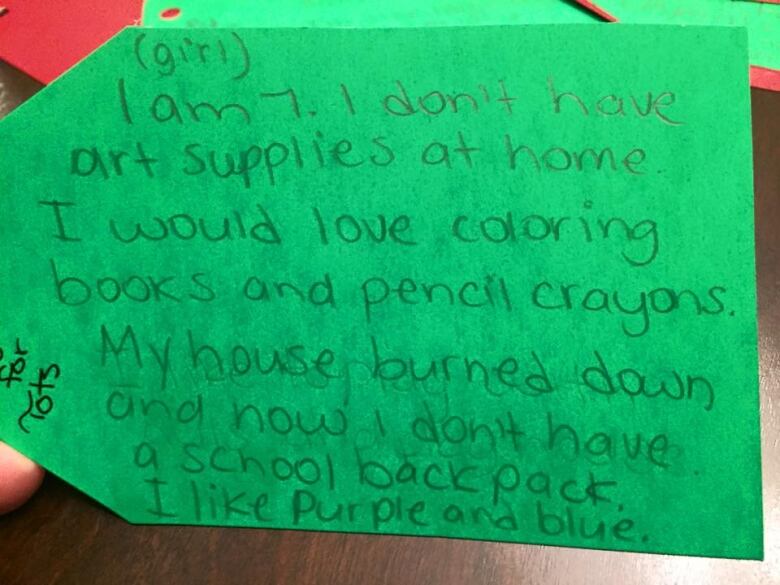 (girl)
I am 7. I don't have
art supplies at home
I would love coloring
books and pencil crayons.
My house burned down
and now I don't have
a school backpack.
I like Purple and blue.
for
tots